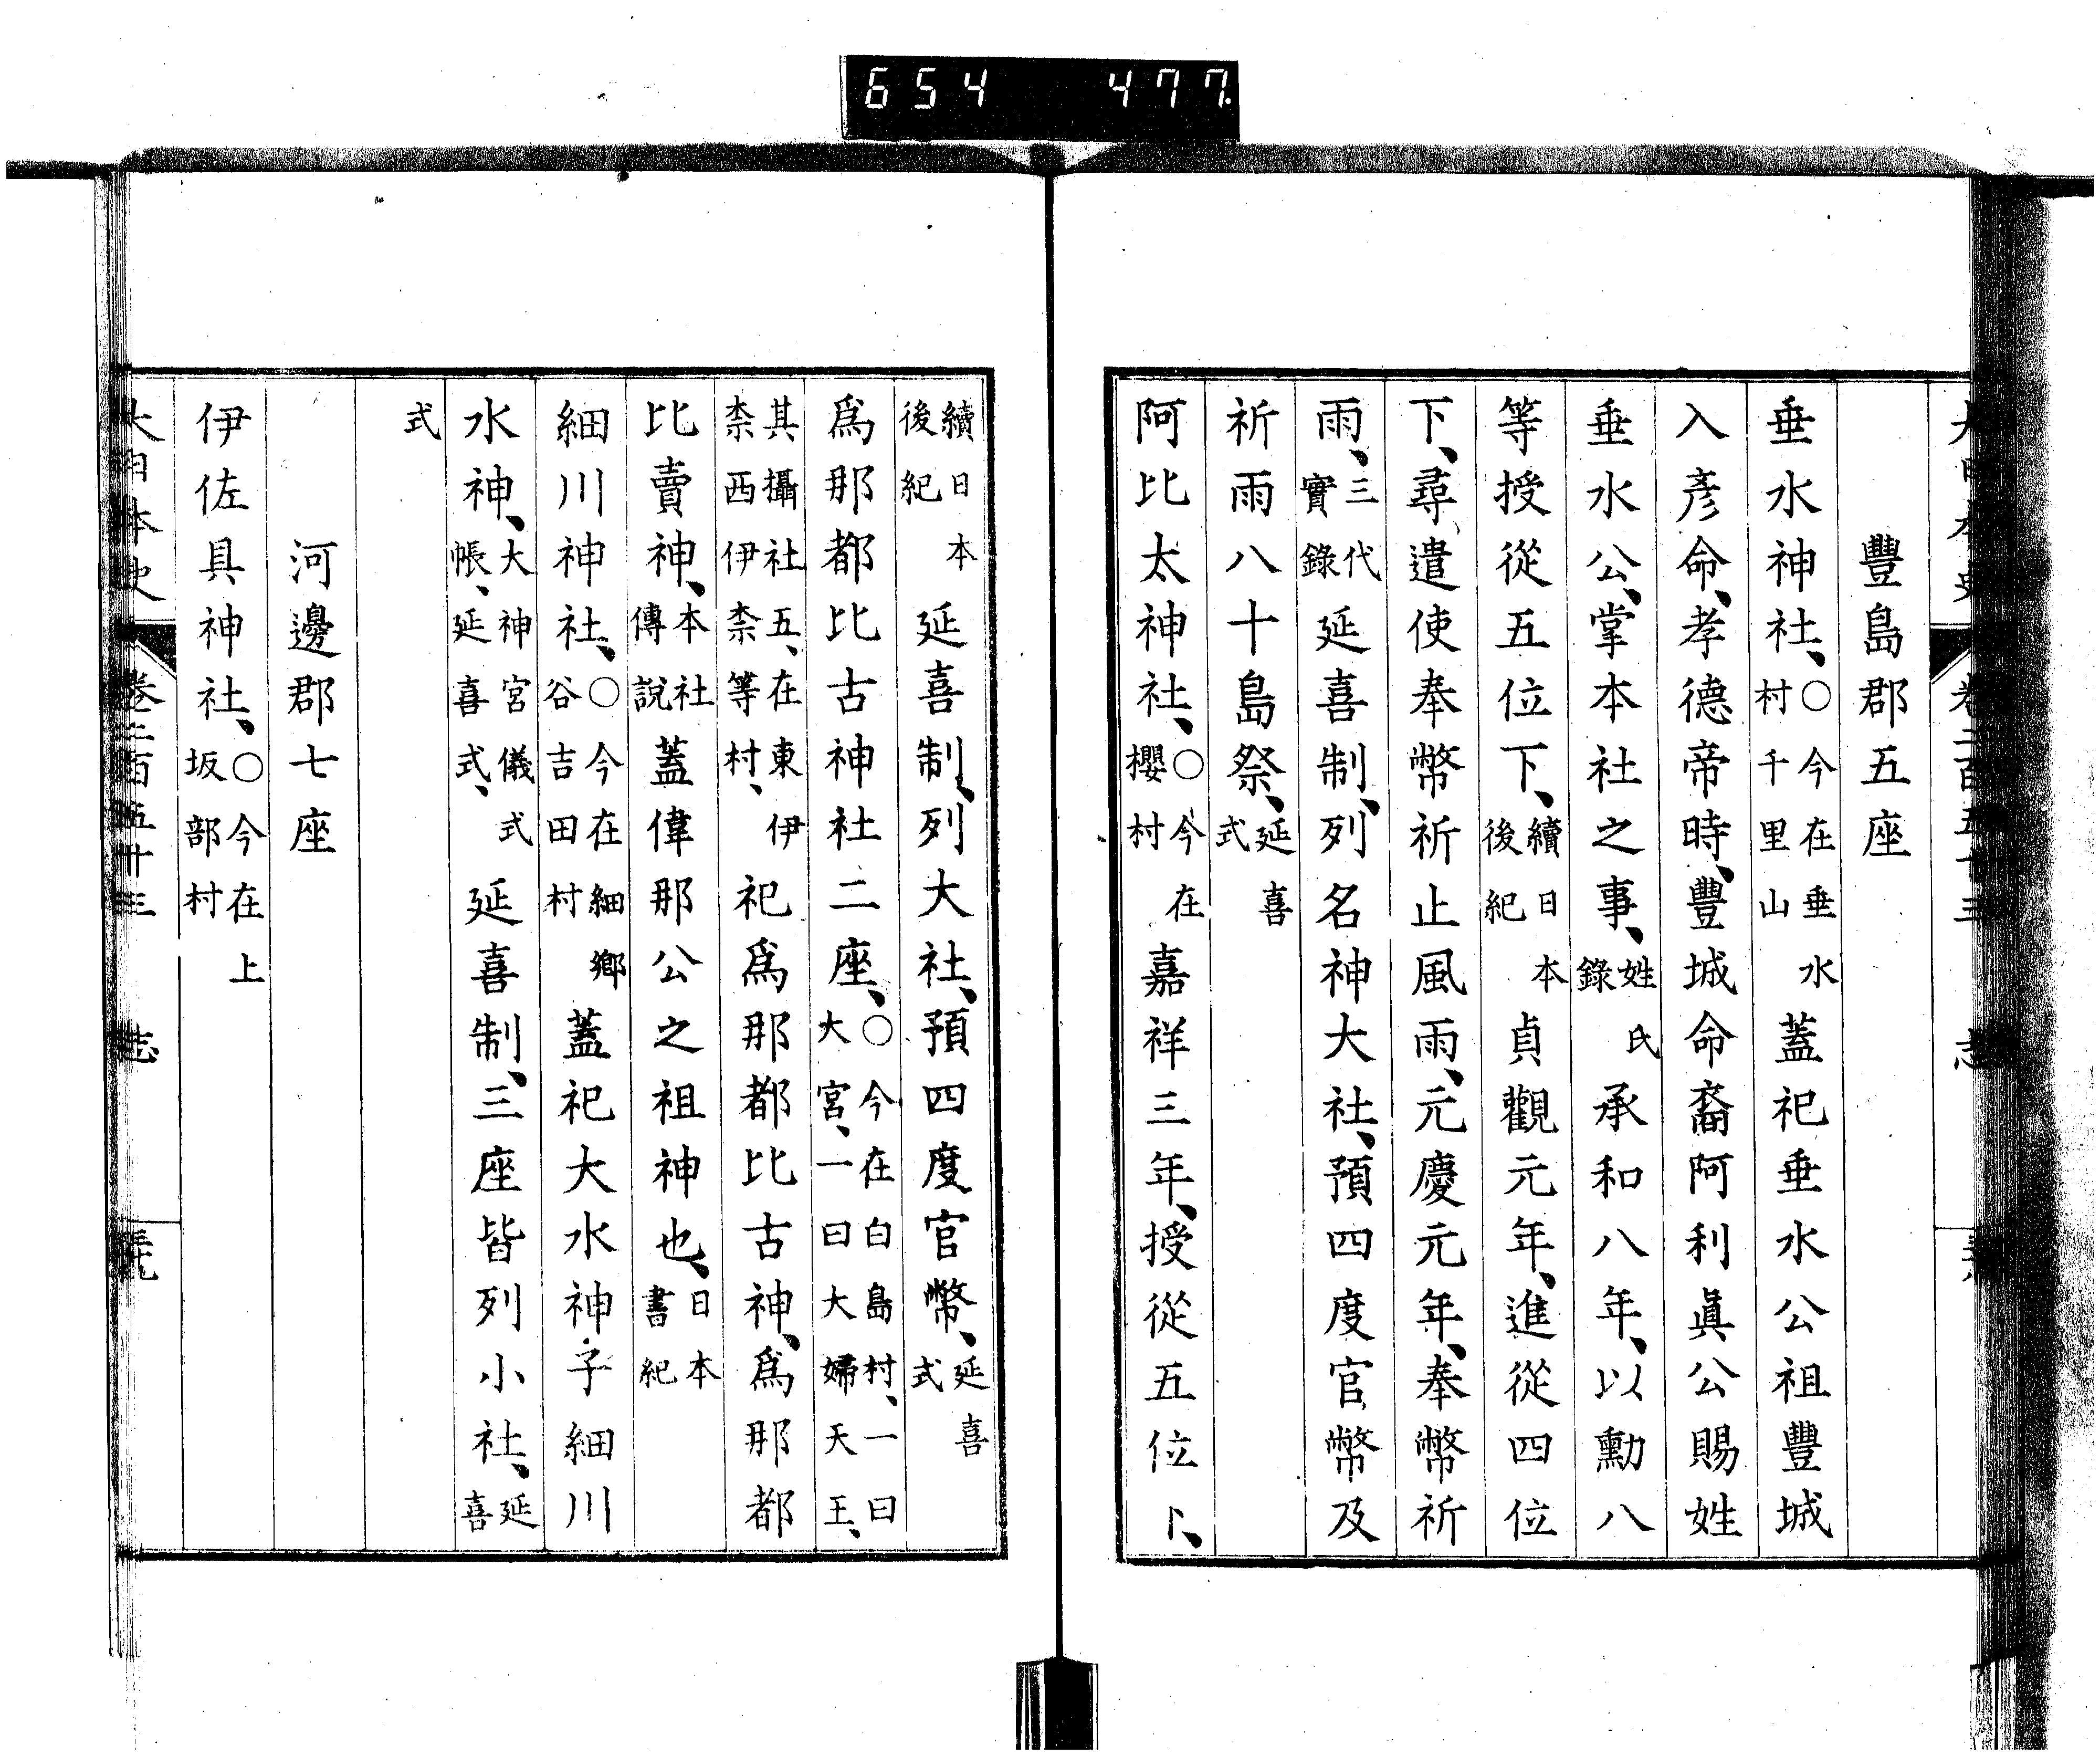 654 477
豐島郡五座
垂水神社、○今在垂水村千里山蓋祀垂水公祖豐城
入彥命、孝德帝時、豐城命裔阿利眞公賜姓
垂水公、掌本社之事、姓氏錄承和八年、以勳八
等授從五位下、續日本後紀貞觀元年、進從四位
下、尋遣使奉幣祈止風雨、元慶元年、奉幣祈
雨、三代實錄延喜制、列名神大社、預四度官幣及
祈雨八十島祭、延喜式
阿比太神社、○今在櫻村嘉祥三年、授從五位下、
續日本後紀延喜制、列大社、預四度官幣、延喜式
爲那都比古神社二座、○今在白島村、一曰大宮、一曰大婦天王、
其攝社五、在東伊柰西伊柰等村、祀爲那都比古神、爲那都
比賣神、本社傳說蓋偉那公之祖神也、日本書紀
細川神社、○今在細鄉谷吉田村蓋祀大水神子細川
水神、大神宮儀式帳、延喜式、延喜制、三座皆列小社、延喜
式
河邊郡七座
伊佐具神社、○今在上坂部村
大日本史 卷二百五十三 志